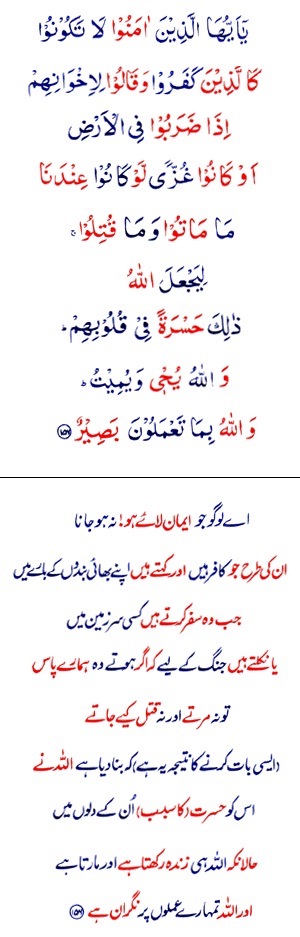 يٰۤاَيُّهَا الَّذِيْنَ اٰمَنُوْا لَا تَكُوْنُوْا
كَالَّذِيْنَ كَفَرُوْا وَقَالُوْا لِاِخْوَانِهِمْ
اِذَا ضَرَبُوْا فِي الْاَرْضِ
اَوْ كَانُوْا غُزًّى لَّوْ كَانُوْا عِنْدَنَا
مَا مَاتُوْا وَمَا قُتِلُوْا ۚ
لِيَجْعَلَ اللّٰهُ
ذٰلِكَ حَسْرَةً فِيْ قُلُوْبِهِمْ ؕ
وَ اللّٰهُ يُحْيٖ وَيُمِيْتُ ؕ
وَ اللّٰهُ بِمَا تَعْمَلُوْنَ بَصِيْرٌ ﴿۱۵۶﴾
اے لوگو جو ایمان لائے ہو! نہ ہو جانا
ان کی طرح جو کافر ہیں اور کہتے ہیں اپنے بھائی بندوں کے بارے میں
جب وہ سفر کرتے ہیں کسی سرزمین میں
یا نکلتے ہیں جنگ کے لیے کہ اگر ہوتے وہ ہمارے پاس
تو نہ مرتے اور نہ قتل کیے جاتے
(ایسی بات کرنے کا نتیجہ یہ ہے) کہ بنا دیا ہے اللہ نے
اس کو حسرت (کا سبب) اُن کے دلوں میں
حالانکہ اللہ ہی زندہ رکھتا ہے اور مارتا ہے
اور اللہ تمہارے عملوں پر نگران ہے ﴿۱۵۶﴾